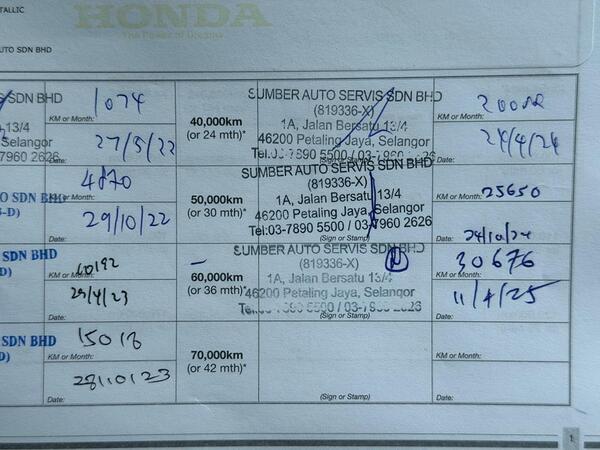 TALLIC
HONDA
The Power of Dreams
UTO SDN BHD
SDN BHD
13/4
Selangor
7960 2626
1074
KM or Month:
27/5/22
Date:
40,000km
(or 24 mth)*
SUMBER AUTO SERVIS SDN BHD
(819336-X)
1A, Jalan Bersatu 13/4
46200 Petaling Jaya, Selangor
Tel:03-7890 5500 / 03-7960
KM or Month:
24/4/24
Date:
SDN BHD
-D)
4870
KM or Month:
29/10/22
Date:
50,000km
(or 30 mth)*
SUMBER AUTO SERVIS SDN BHD
(819336-X)
1A, Jalan Bersatu 13/4
46200 Petaling Jaya, Selangor
Tel:03-7890 5500 / 03-7960 2626
(Sign or Stamp)
25650
KM or Month:
24/10/24
Date:
SDN BHD
D)
10192
KM or Month:
29/4/23
Date:
60,000km
(or 36 mth)*
SUMBER AUTO SERVIS SDN BHD
(819336-X)
1A, Jalan Bersatu 13/4
46200 Petaling Jaya, Selangor
(Sign or Stamp)
30676
KM or Month:
11/4/25
Date:
SDN BHD
D)
15018
KM or Month:
28/10/23
Date:
70,000km
(or 42 mth)*
(Sign or Stamp)
KM or Month:
Date:
1